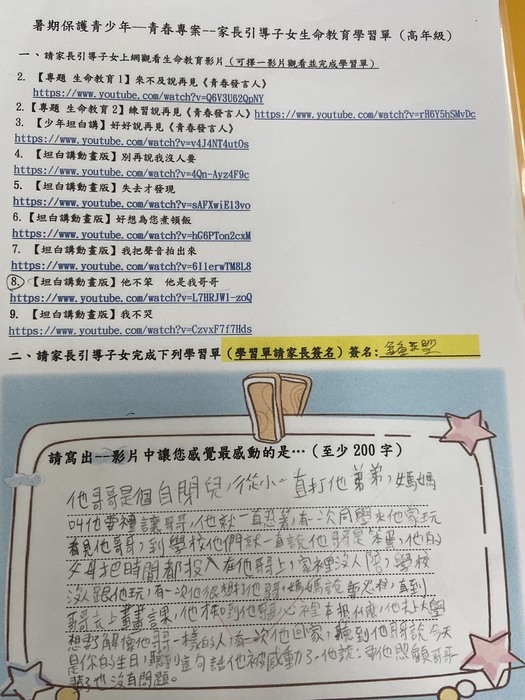 暑期保護青少年—青春專案--家長引導子女生命教育學習單（高年級）
一、請家長引導子女上網觀看生命教育影片（可擇一影片觀看並完成學習單）
2. 【專題 生命教育1】來不及說再見《青春發言人》
https://www.youtube.com/watch?v=Q6V3U62QpNY
2.【專題 生命教育2】練習說再見《青春發言人》https://www.youtube.com/watch?v=rH6Y5hSMvDc
3. 【少年坦白講】好好說再見《青春發言人》
https://www.youtube.com/watch?v=v4J4NT4ut0s
4. 【坦白講動畫版】別再說我沒人要
https://www.youtube.com/watch?v=4Qn-Ayz4F9c
5. 【坦白講動畫版】失去才發現
https://www.youtube.com/watch?v=sAFXwiE13vo
6.【坦白講動畫版】好想為您煮頓飯
https://www.youtube.com/watch?v=hG6PTon2cxM
7. 【坦白講動畫版】我把聲音拍出來
https://www.youtube.com/watch?v=6I1erwTM8L8
8. 【坦白講動畫版】他不笨 他是我哥哥
https://www.youtube.com/watch?v=L7HRJW1-zoQ
9. 【坦白講動畫版】我不哭
https://www.youtube.com/watch?v=CzvxF7f7Hds
二、請家長引導子女完成下列學習單（學習單請家長簽名）簽名：
請寫出--影片中讓您感覺最感動的是…（至少200字）
他哥哥是個自閉兒，從小一直打他弟弟，媽媽
叫他要禮讓哥哥，他就一直忍著，有一次同學來他家玩
看見他哥哥，到學校他們就一直說他哥哥是笨蛋，他的
父母把時間都投入在他哥上，家裡沒人陪，學校
沒人跟他玩，有一次他很想他哥，媽媽說，直到
哥去上畫畫課，他才知道他哥心裡在想什麼，他上大學
想去了解像他哥一樣的人，有一次他回家，聽到他哥說今天
是你的生日，聽到這句話他被感動了。他說：要他照顧哥哥
一輩子也沒有問題。